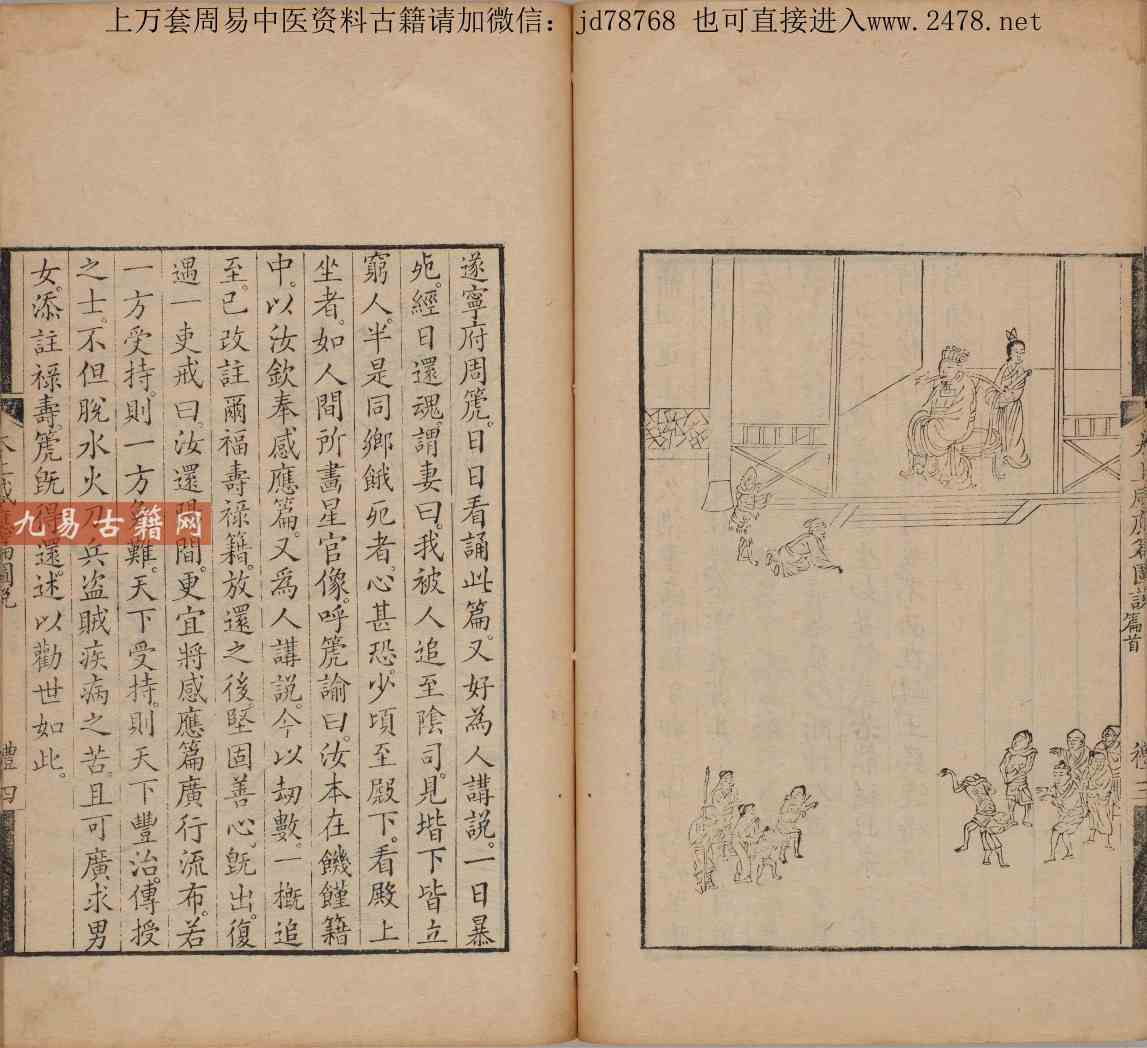 上万套周易中医资料古籍请加微信：jd78768 也可直接进入www.2478.net
遂寧府周篪。日日看誦此篇。又好為人講說。一日暴
死。經日還魂。謂妻曰。我被人追至陰司。見堦下皆立
窮人。半是同鄉餓死者。心甚恐。少頃至殿下。看殿上
坐者。如人間所畫星官像。呼篪諭曰。汝本在饑饉籍
中。以汝欽奉感應篇。又為人講說。今以劫數。一槪追
至。已改註爾福壽祿籍。放還之後。堅固善心。旣出。復
遇一吏戒曰。汝還陽間。更宜將感應篇廣行流布。若
一方受持。則一方免難。天下受持。則天下豐治。傳授
之士。不但脫水火刀兵盜賊疾病之苦。且可廣求男
女。添註祿壽。篪旣得還。述以勸世如此。
太上感應篇圖說
禮 四
太上感應篇圖說 篇首
禮
九易古籍网